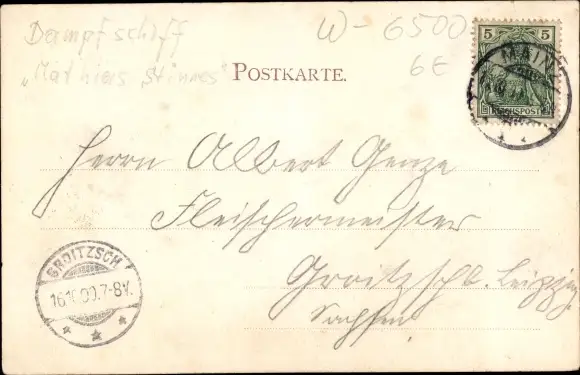 Dampfschiff
„Mathias Stinnes"
W-6500
6€
POSTKARTE.
5 5
MAINZ
REICHSPOST
Herrn Albert Genze
Fleischermeister
Groitzsch b. Leipzig
Sachsen
GROITZSCH
16.10.00.7-8V.